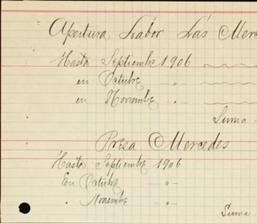 Apertura Labor Las Mer
Hasta Septiembre 1906
en Octubre "
en Noviembre "
Suma
Presa Mercedes
Hasta Septiembre 1906
En Octubre "
" Noviembre "
Suma